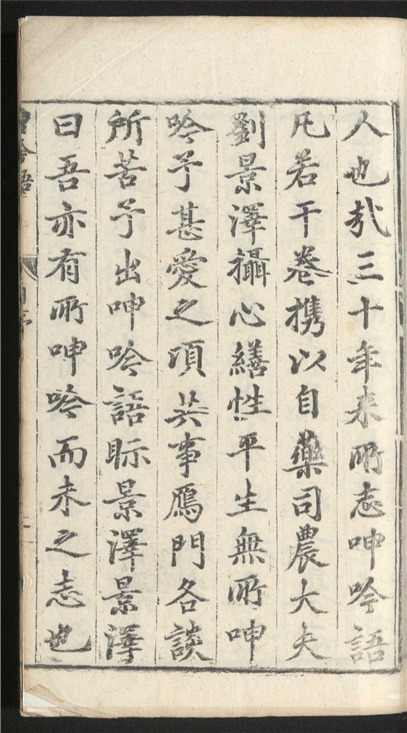 人也哉三十年來所志呻吟語
凡若干卷携以自藥司農大夫
劉景澤攝心繕性平生無所呻
吟予甚愛之頃共事鴈門各談
所苦予出呻吟語眎景澤景澤
曰吾亦有所呻吟而未之志也
吟語